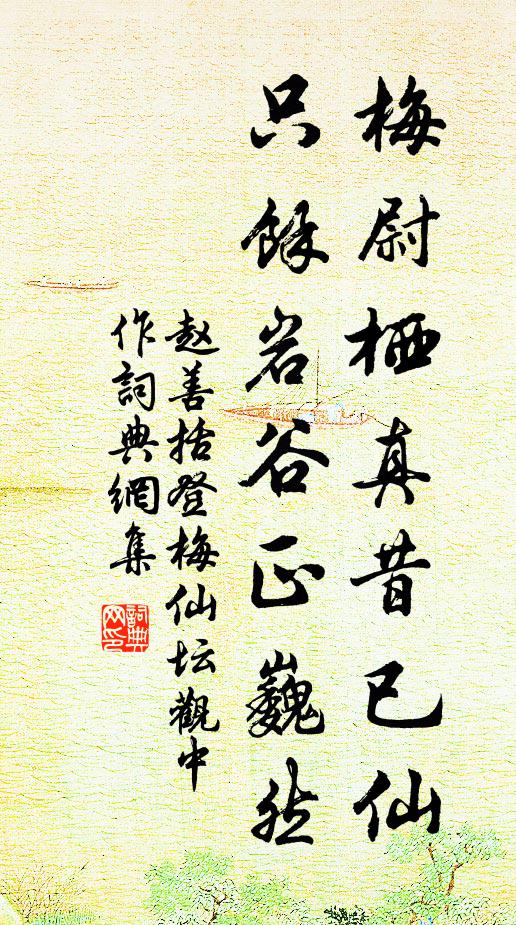 梅尉栖真昔已仙
只餘岩谷正巍然
赵善括登梅仙坛觀中
作詞典網集
詞典
网印